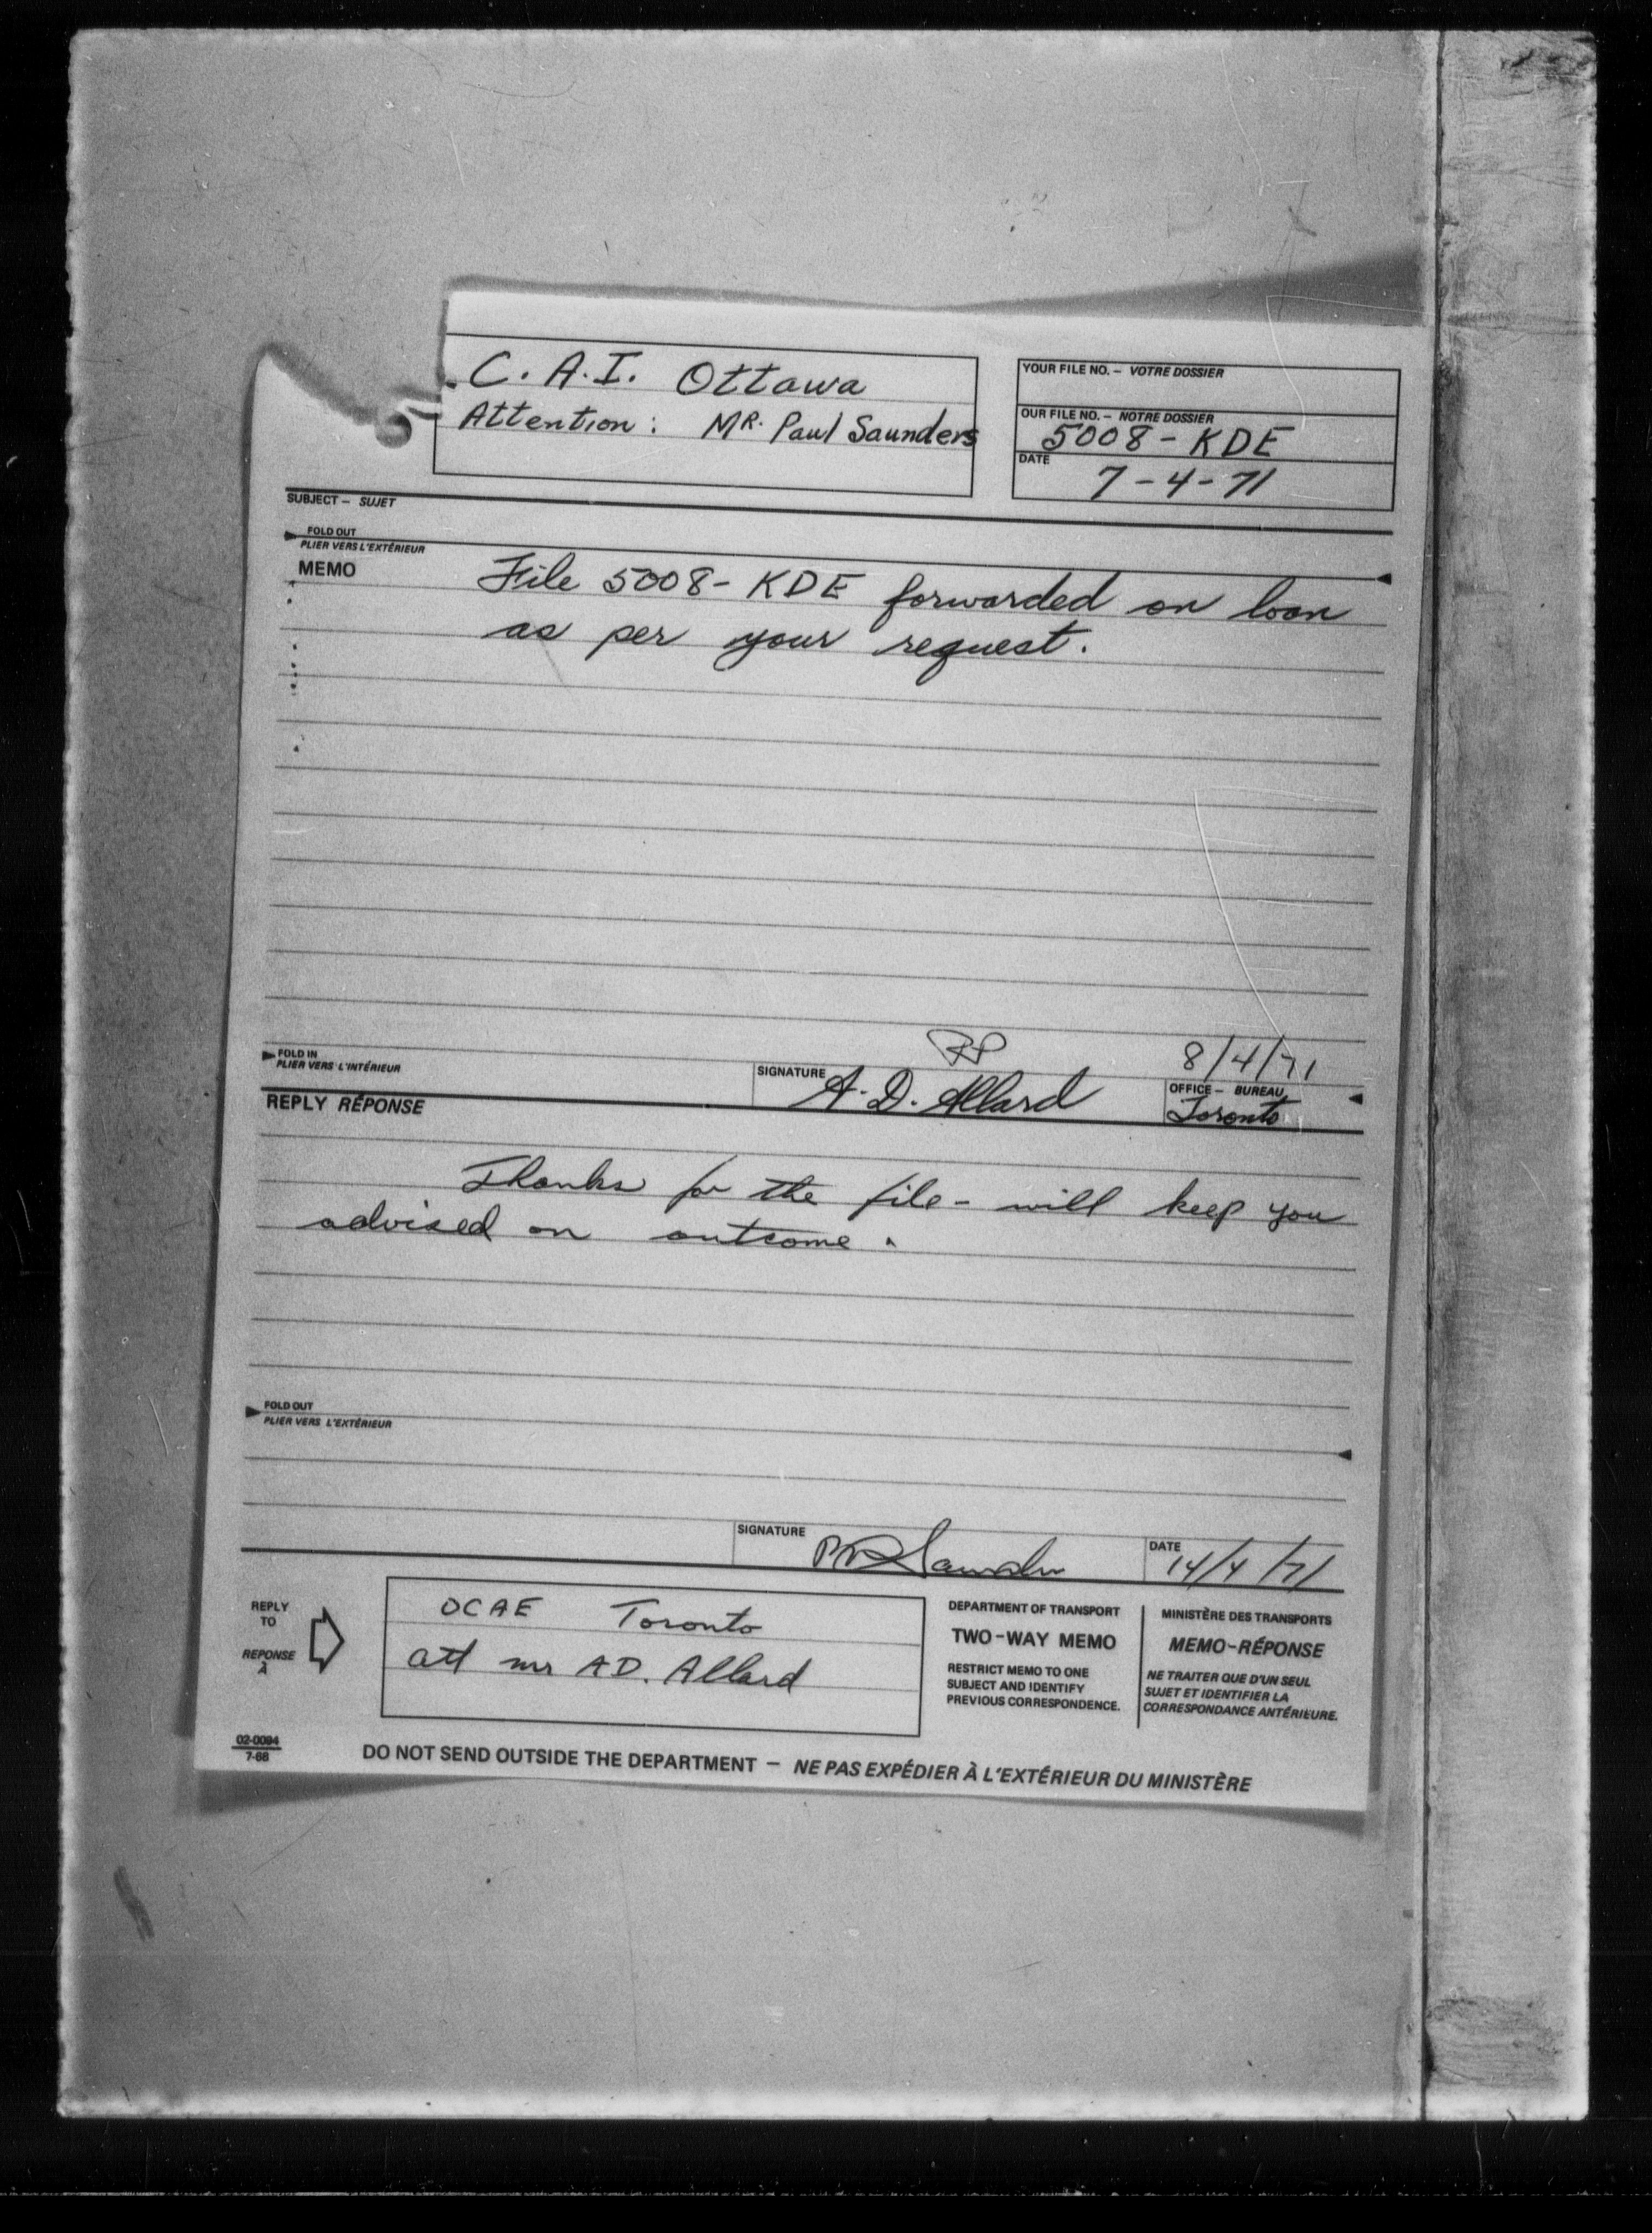 C. A. I. Ottawa
Attention: MR. Paul Saunders
YOUR FILE NO. – VOTRE DOSSIER
OUR FILE NO. – NOTRE DOSSIER
5008 - KDE
DATE
7-4-71
SUBJECT – SUJET
FOLD OUT
PLIER VERS L'EXTÉRIEUR
MEMO
File 5008-KDE forwarded on loan
as per your request.
8/4/71
FOLD IN
PLIER VERS L'INTÉRIEUR
SIGNATURE
A. D. Allard
OFFICE – BUREAU
Toronto
REPLY RÉPONSE
Thanks for the file - will keep you
advised on outcome.
FOLD OUT
PLIER VERS L'EXTÉRIEUR
SIGNATURE
Saunders
DATE
14/4/71
REPLY
TO
REPONSE
À
OCAE Toronto
att mr AD. Allard
DEPARTMENT OF TRANSPORT
TWO-WAY MEMO
RESTRICT MEMO TO ONE
SUBJECT AND IDENTIFY
PREVIOUS CORRESPONDENCE.
MINISTÈRE DES TRANSPORTS
MEMO-RÉPONSE
NE TRAITER QUE D'UN SEUL
SUJET ET IDENTIFIER LA
CORRESPONDANCE ANTÉRIEURE.
02-0094
7-68
DO NOT SEND OUTSIDE THE DEPARTMENT – NE PAS EXPÉDIER À L'EXTÉRIEUR DU MINISTÈRE